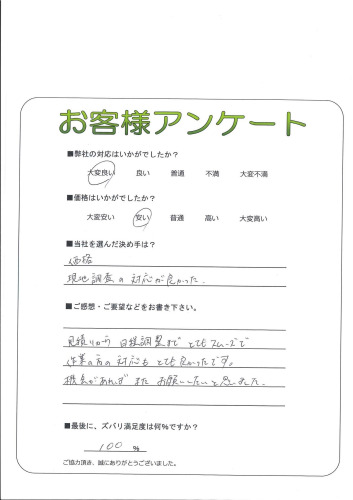 お客様アンケート
■弊社の対応はいかがでしたか？
大変良い 良い 普通 不満 大変不満
■価格はいかがでしたか？
大変安い 安い 普通 高い 大変高い
■当社を選んだ決め手は？
価格
現地調査の対応が良かった.
■ご感想・ご要望などをお書き下さい。
見積りから 日程調整まで とてもスムーズで
作業の方の対応も とても良かったです。
機会があれば また お願いしたいと思いました.
■最後に、ズバリ満足度は何％ですか？
100 %
ご協力頂き、誠にありがとうございました。